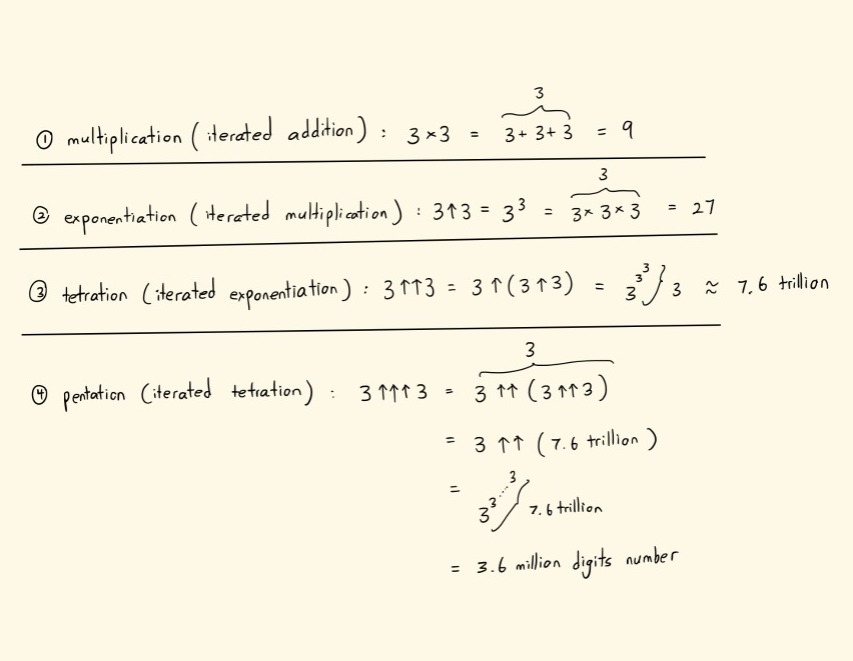 3
① multiplication (iterated addition) : 3 × 3 = 3 + 3 + 3 = 9
3
② exponentiation (iterated multiplication) : 3↑3 = 3³ = 3 × 3 × 3 = 27
③ tetration (iterated exponentiation) : 3↑↑3 = 3↑(3↑3) = 3^3^3 } 3 ≈ 7.6 trillion
3
④ pentation (iterated tetration) : 3↑↑↑3 = 3↑↑(3↑↑3)
= 3↑↑(7.6 trillion)
= 3^3^...^3 } 7.6 trillion
= 3.6 million digits number